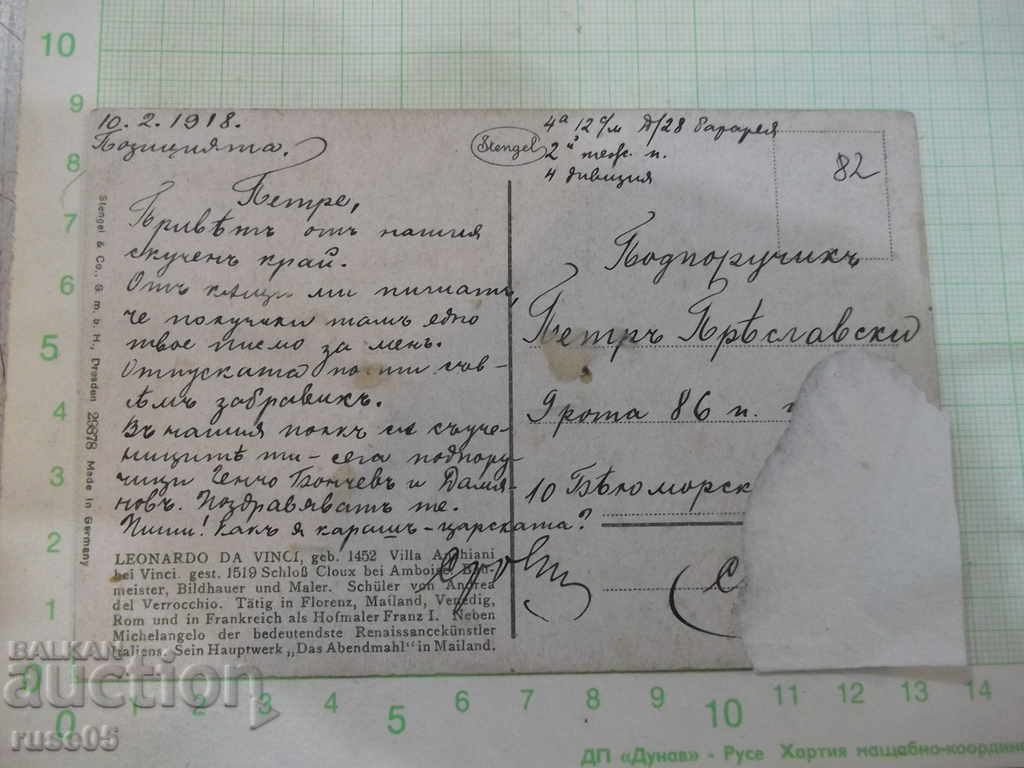 10.2.1918.
Позицията.
Петре,
Привѣтъ отъ нашия
скученъ край.
Отъ ми пишатъ,
че получили тамъ едно
твое писмо за мень.
Отпуската почти съв-
ѣмъ забравихъ.
Въ нашия полкъ сѫ съуче-
ницитѣ ти - сега подпору-
чици Генчо Бончевъ и Дамя-
новъ. Поздравяватъ те.
Пиши! Какъ я карашъ - царската?
Stengel
4а 12 Д/28 батарея
2й п.
4 дивизия
82
Подпоручикъ
Петръ Прѣславски
9 рота 86 п.
10 Бѣломорск
Stengel & Co., G. m. b. H., Dresden 29878 Made in Germany
LEONARDO DA VINCI, geb. 1452 Villa Anchiani
bei Vinci. gest. 1519 Schloß Cloux bei Amboise. Bau-
meister, Bildhauer und Maler. Schüler von Andrea
del Verrocchio. Tätig in Florenz, Mailand, Venedig,
Rom und in Frankreich als Hofmaler Franz I. Neben
Michelangelo der bedeutendste Renaissancekünstler
Italiens. Sein Hauptwerk „Das Abendmahl" in Mailand.
10
9
8
7
6
5
4
3
2
1
0
0 1 2 3 4 5 6 7 8 9 10 11 12 13 14
BALKAN
auction
ruse05
ДП «Дунав» - Русе Хартия мащабно-координ